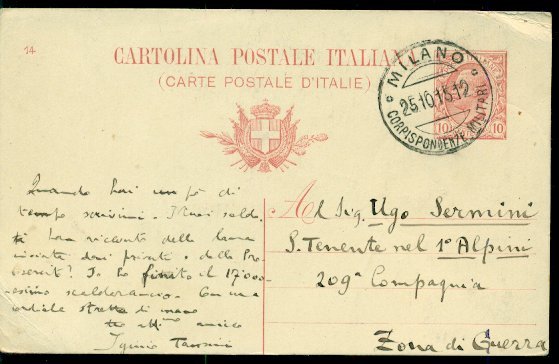 14
CARTOLINA POSTALE ITALIANA
(CARTE POSTALE D'ITALIE)
MILANO
25.10.15.12
CORRISPONDENZE MILITARI
10 10
Quando hai un pò di
tempo scrivimi. I tuoi sold.
ti hanno delle lana
inviate dai privati e dalla
? Io ho finito il 17000
esimo scalderancio. Con una
cordiale stretta di mano
tuo amico
Al Sig. Ugo Sermini
S. Tenente nel 1º Alpini
209ª Compagnia
Zona di Guerra